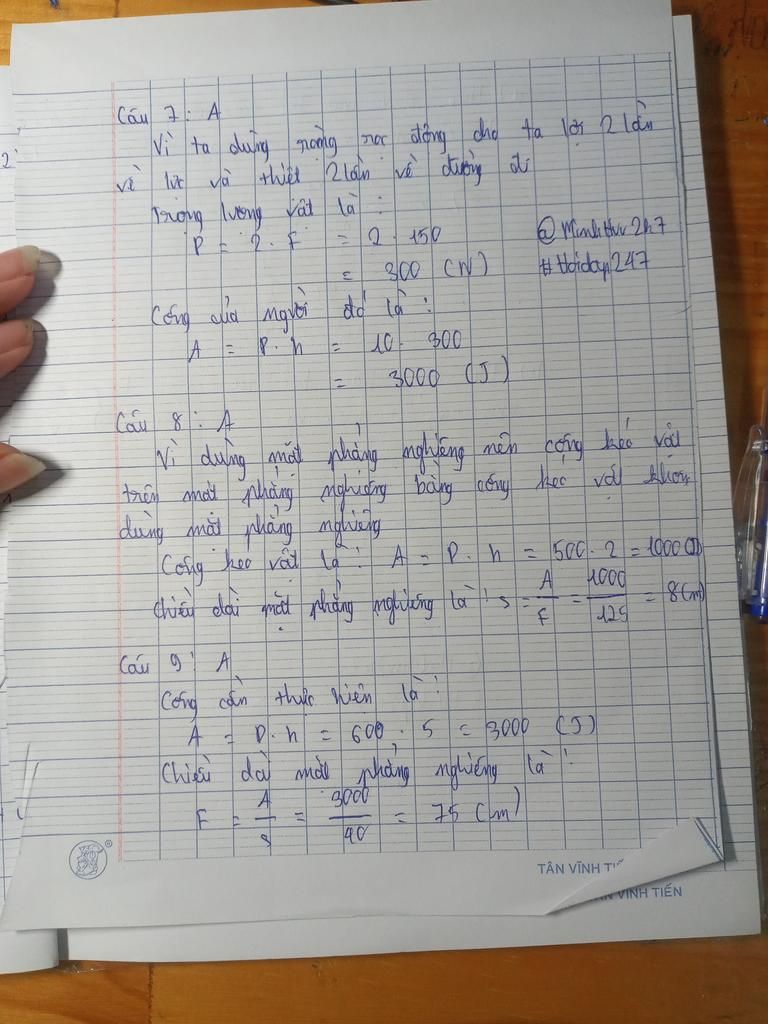 Câu 7: A
Vì ta dùng ròng rọc động cho ta lợi 2 lần
về lực và thiệt 2 lần về đường đi
Trọng lượng vật là:
P = 2.F = 2.150
= 300 (N)
@MinhHuy2k7
#Hoidap247
Công của người đó là:
A = P.h = 10.300
= 3000 (J)
Câu 8: A
Vì dùng mặt phẳng nghiêng nên công kéo vật
trên mặt phẳng nghiêng bằng công kéo vật không
dùng mặt phẳng nghiêng
Công kéo vật là: A = P.h = 500.2 = 1000 (J)
Chiều dài mặt phẳng nghiêng là: s = A/F = 1000/125 = 8 (m)
Câu 9: A
Công cần thực hiện là:
A = P.h = 600.5 = 3000 (J)
Chiều dài mặt phẳng nghiêng là:
F = A/s = 3000/40 = 75 (m)
TÂN VĨNH TI
VĨNH TIẾN